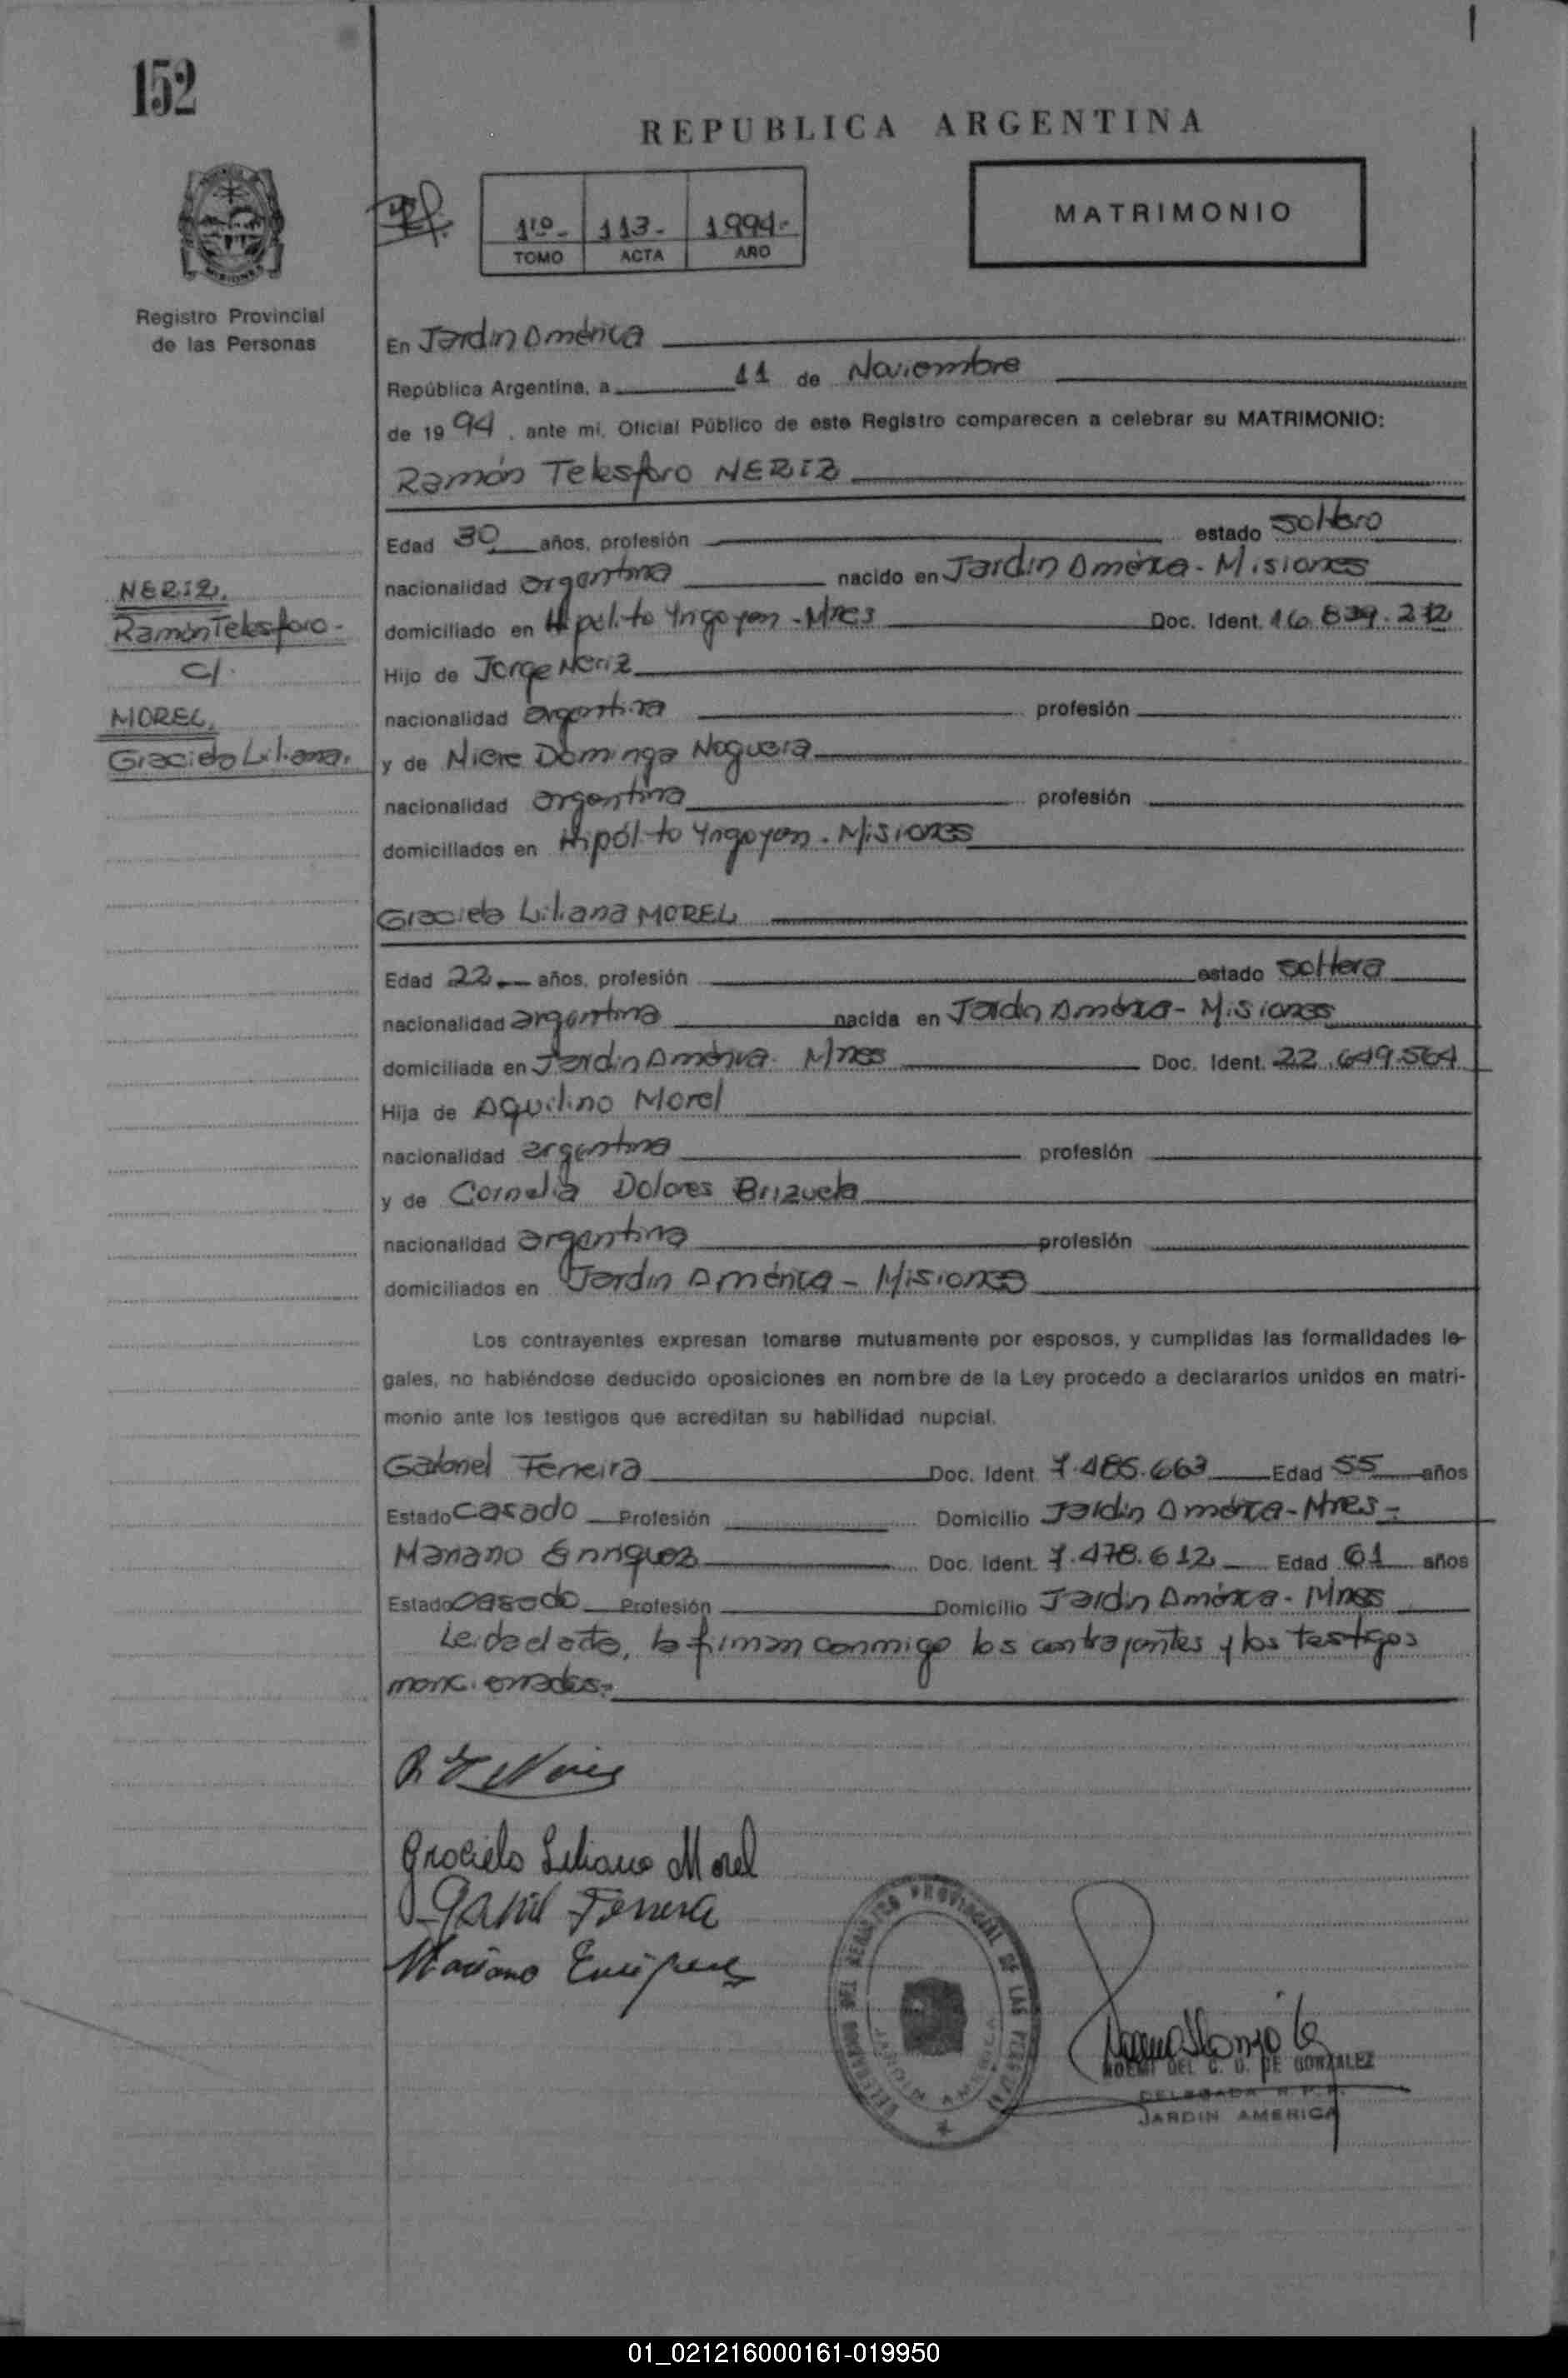 152
REPUBLICA ARGENTINA
1ro- 113- 1994-
TOMO ACTA AÑO
MATRIMONIO
MISIONES
Registro Provincial
de las Personas
En Jardin América
República Argentina, a 11 de Noviembre
de 1994, ante mi, Oficial Público de este Registro comparecen a celebrar su MATRIMONIO:
Ramón Telesforo NERIZ
Edad 30 años, profesión estado soltero
nacionalidad argentina nacido en Jardin América - Misiones
domiciliado en Hipólito Yrigoyen - Mnes Doc. Ident. 16.839.212
Hijo de Jorge Neriz
nacionalidad argentina profesión
y de Dominga Noguera
nacionalidad argentina profesión
domiciliados en Hipólito Yrigoyen - Misiones
NERIZ,
Ramón Telesforo-
c/.
MOREL,
Graciela Liliana.
Graciela Liliana MOREL
Edad 22 años, profesión estado soltera
nacionalidad argentina nacida en Jardin América - Misiones
domiciliada en Jardin América. Mnes Doc. Ident. 22.649.564
Hija de Aquilino Morel
nacionalidad argentina profesión
y de Cornelia Dolores Brizuela
nacionalidad argentina profesión
domiciliados en Jardin América - Misiones
Los contrayentes expresan tomarse mutuamente por esposos, y cumplidas las formalidades le-
gales, no habiéndose deducido oposiciones en nombre de la Ley procedo a declararlos unidos en matri-
monio ante los testigos que acreditan su habilidad nupcial.
Gabriel Ferreira Doc. Ident. 7.485.663 Edad 55 años
Estado casado Profesión Domicilio Jardin América - Mnes -
Mariano Enriquez Doc. Ident. 7.478.612 Edad 61 años
Estado casado Profesión Domicilio Jardin América - Mnes
Leida el acta, la firman conmigo los contrayentes y los testigos
mencionados.-
R T Neriz
Graciela Liliana Morel
Gabriel Ferreira
Mariano Enriquez
DELEGADO DEL REGISTRO PROVINCIAL DE LAS PERSONAS
JARDIN AMERICA
NOEMI DEL C. G. DE GONZALEZ
DELEGADA R. P. P.
JARDIN AMERICA
01_021216000161-019950